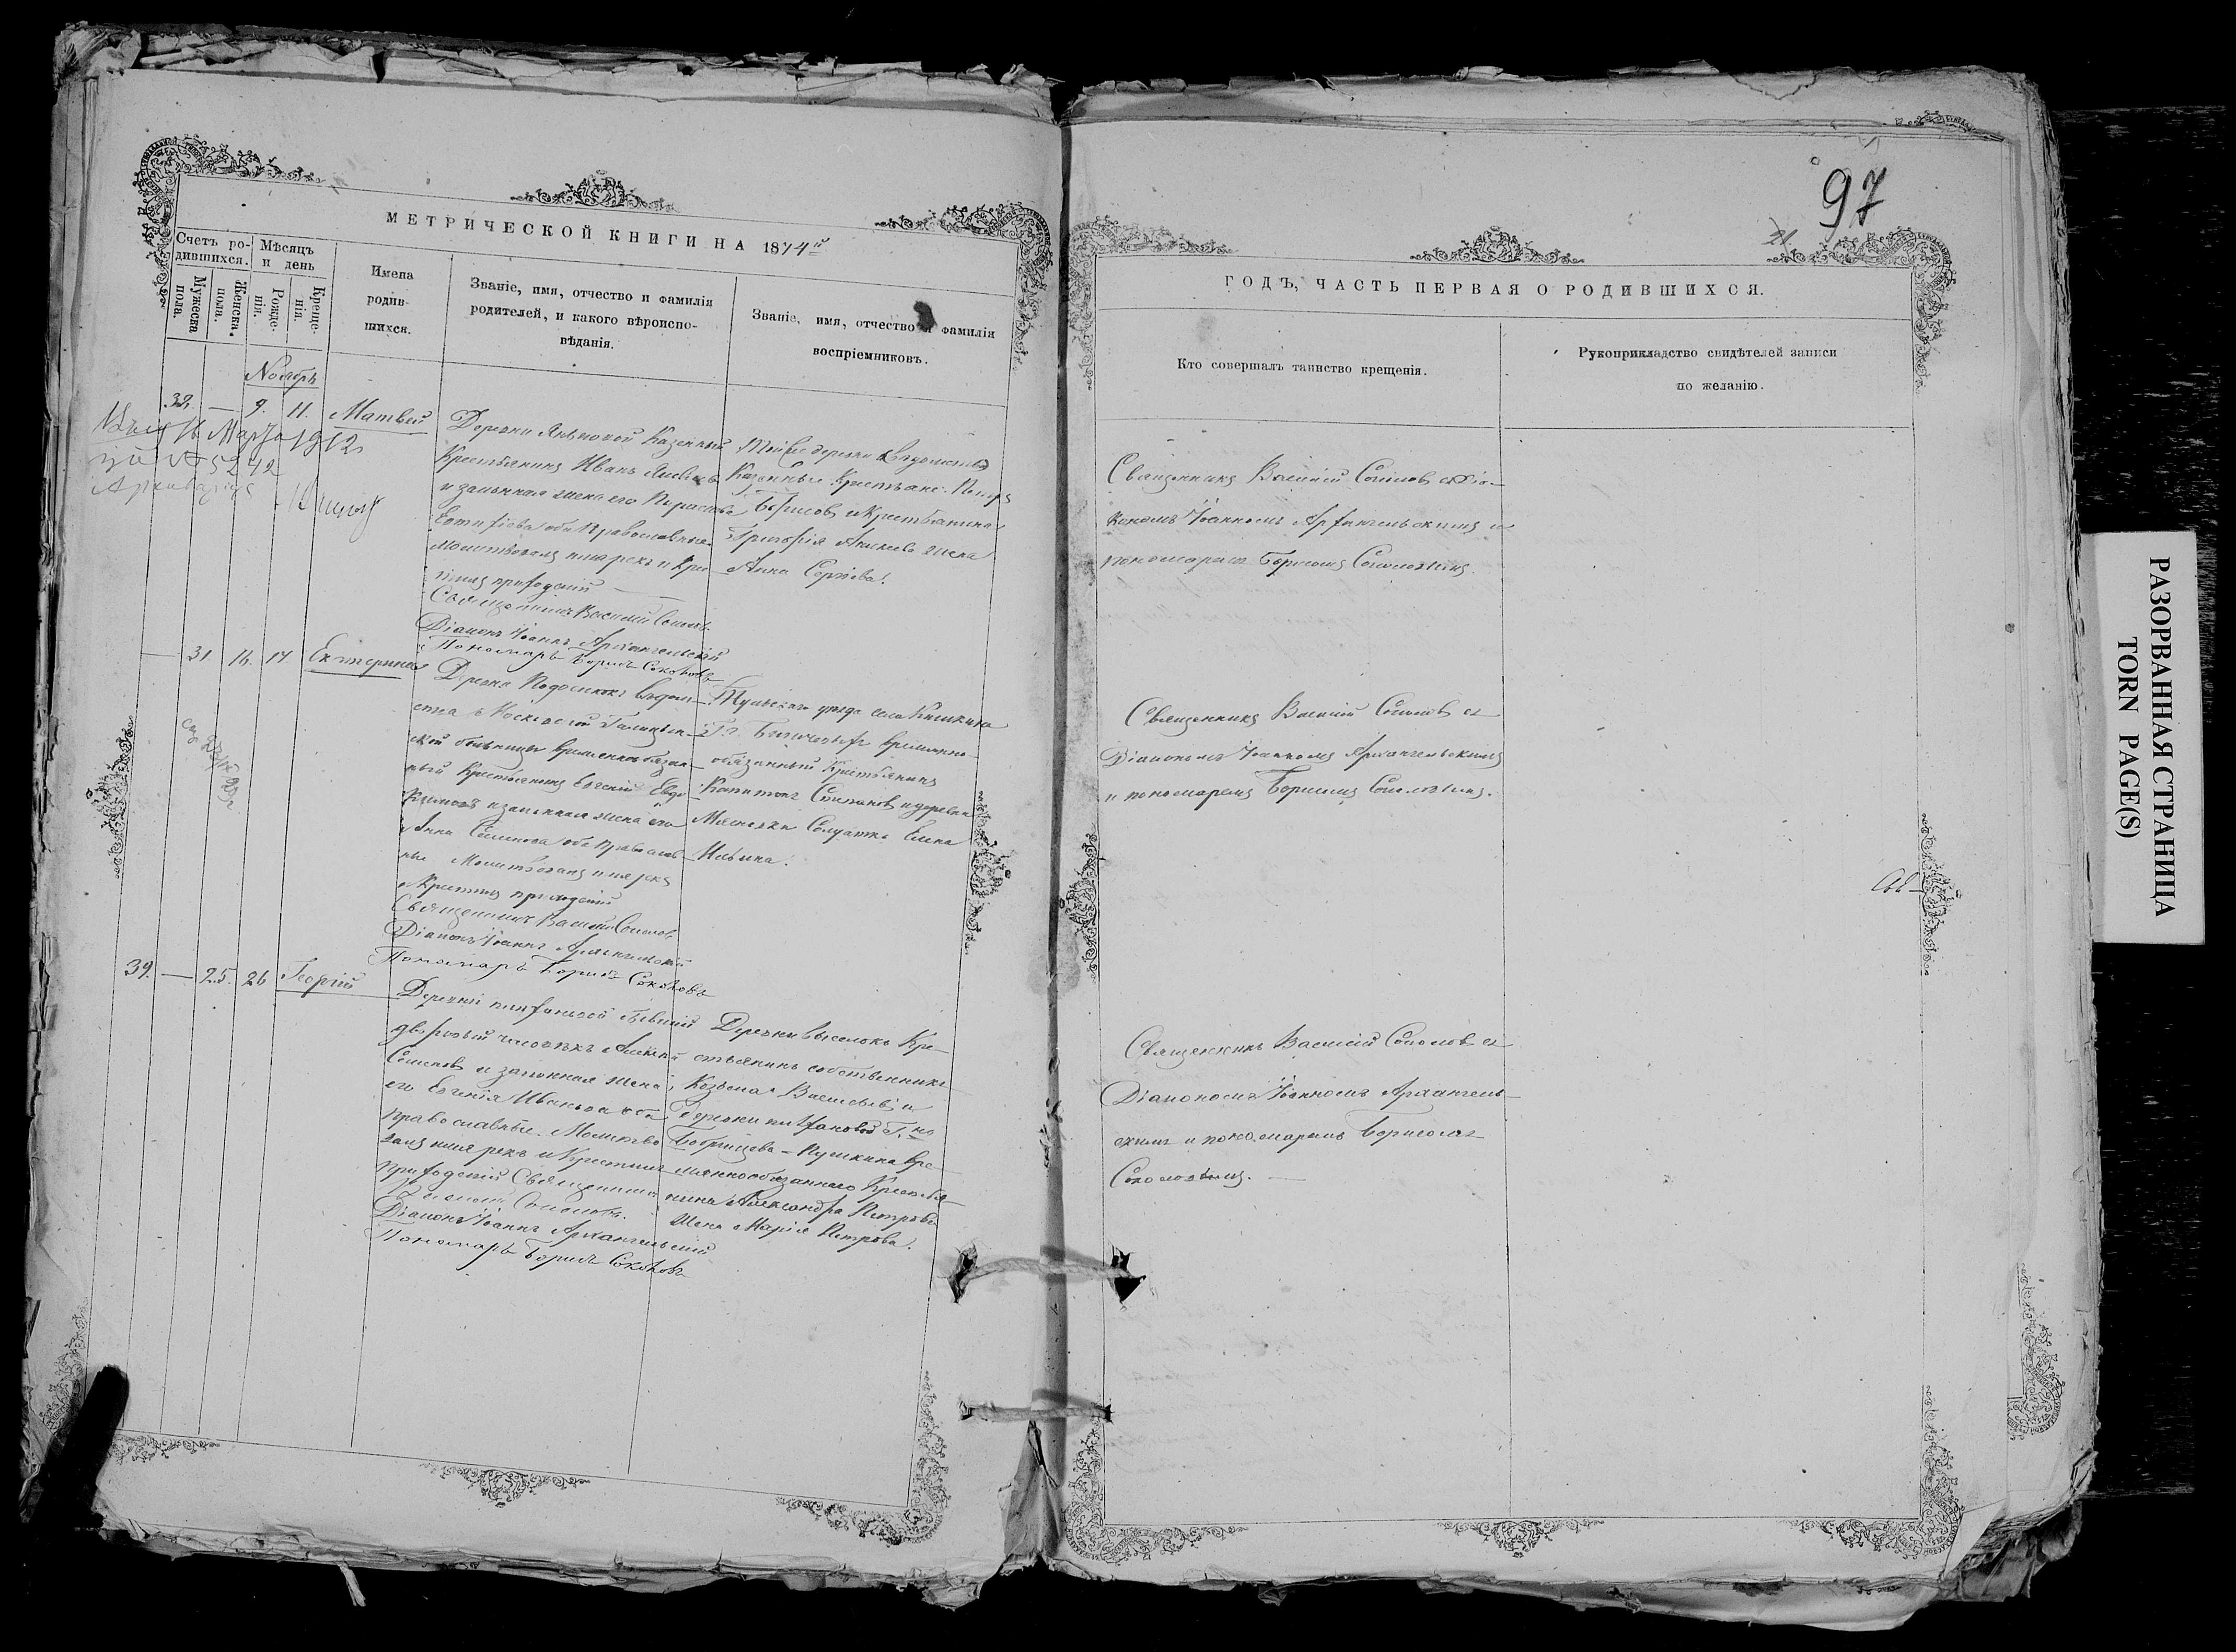 МЕТРИЧЕСКОЙ КНИГИ НА 1874й
Счетъ ро-
дившихся.
Мѣсяцъ
и день
Мужеска
пола.
Женска.
пола.
Рожде-
нія.
Креще-
нія.
Имена
родив-
шихся.
Званіе, имя, отчество и фамилія
родителей, и какого вѣроиспо-
вѣданія.
Званіе, имя, отчество и фамилія
воспріемниковъ.
Ноябрь
38. — 9. 11. Матвей
16 Марта 1912
№ 5242
Деревни Казенный
Крестьянинъ Иванъ
и законная жена его
оба Православные.
Молитвовалъ имя рекъ и Кре
стилъ приходскій
Священникъ Василій Соколовъ.
Діаконъ Іоаннъ Архангельскій
Пономарь Борисъ Соколовъ
Той же деревни вѣдомства
Казенные Крестьяне: Петръ
Борисовъ и Крестьянина
Григорія Алексѣева жена
Анна Сергіева.
— 31 16. 17. Екатерина
Деревни Подосинокъ вѣдом-
ства Московской Голицын-
ской больницы временнообязан-
ный Крестьянинъ Евгеній Евдо
кимовъ и законная жена его
Анна Семенова оба православ-
ные. Молитвовалъ имя рекъ
и Крестилъ приходскій
Священникъ Василій Соколовъ
Діаконъ Іоаннъ Архангельскій
Пономарь Борисъ Соколовъ
Тульскаго уѣзда села
Г. временно-
обязанный Крестьянинъ
Капитонъ Степановъ и деревни
Солдатка Елена
Ильина.
39. — 25. 26 Георгій
Деревни бывшій
дворовый человѣкъ Алексѣй
Семеновъ и законная жена
его Евгенія Иванова оба
православные. Молитво
валъ имя рекъ и Крестилъ
приходскій Священникъ
Василій Соколовъ.
Діаконъ Іоаннъ Архангельскій
Пономарь Борисъ Соколовъ
Деревни Выселокъ Кре-
стьянинъ собственникъ
Козьма Васильевъ и
деревни Г. на
Бобрищева-Пушкина вре-
меннообязаннаго Крестья-
нина Александра Петрова
жена Марія Петрова.
97
21
ГОДЪ, ЧАСТЬ ПЕРВАЯ О РОДИВШИХСЯ.
Кто совершалъ таинство крещенія.
Рукоприкладство свидѣтелей записи
по желанію.
Священникъ Василій Соколовъ съ Діа-
кономъ Іоанномъ Архангельскимъ и
пономаремъ Борисомъ Соколовымъ.
Священникъ Василій Соколовъ съ
Діакономъ Іоанномъ Архангельскимъ
и пономаремъ Борисомъ Соколовымъ.
Священникъ Василій Соколовъ съ
Діакономъ Іоанномъ Архангель-
скимъ и пономаремъ Борисомъ
Соколовымъ.
РАЗОРВАННАЯ СТРАНИЦА
TORN PAGE(S)